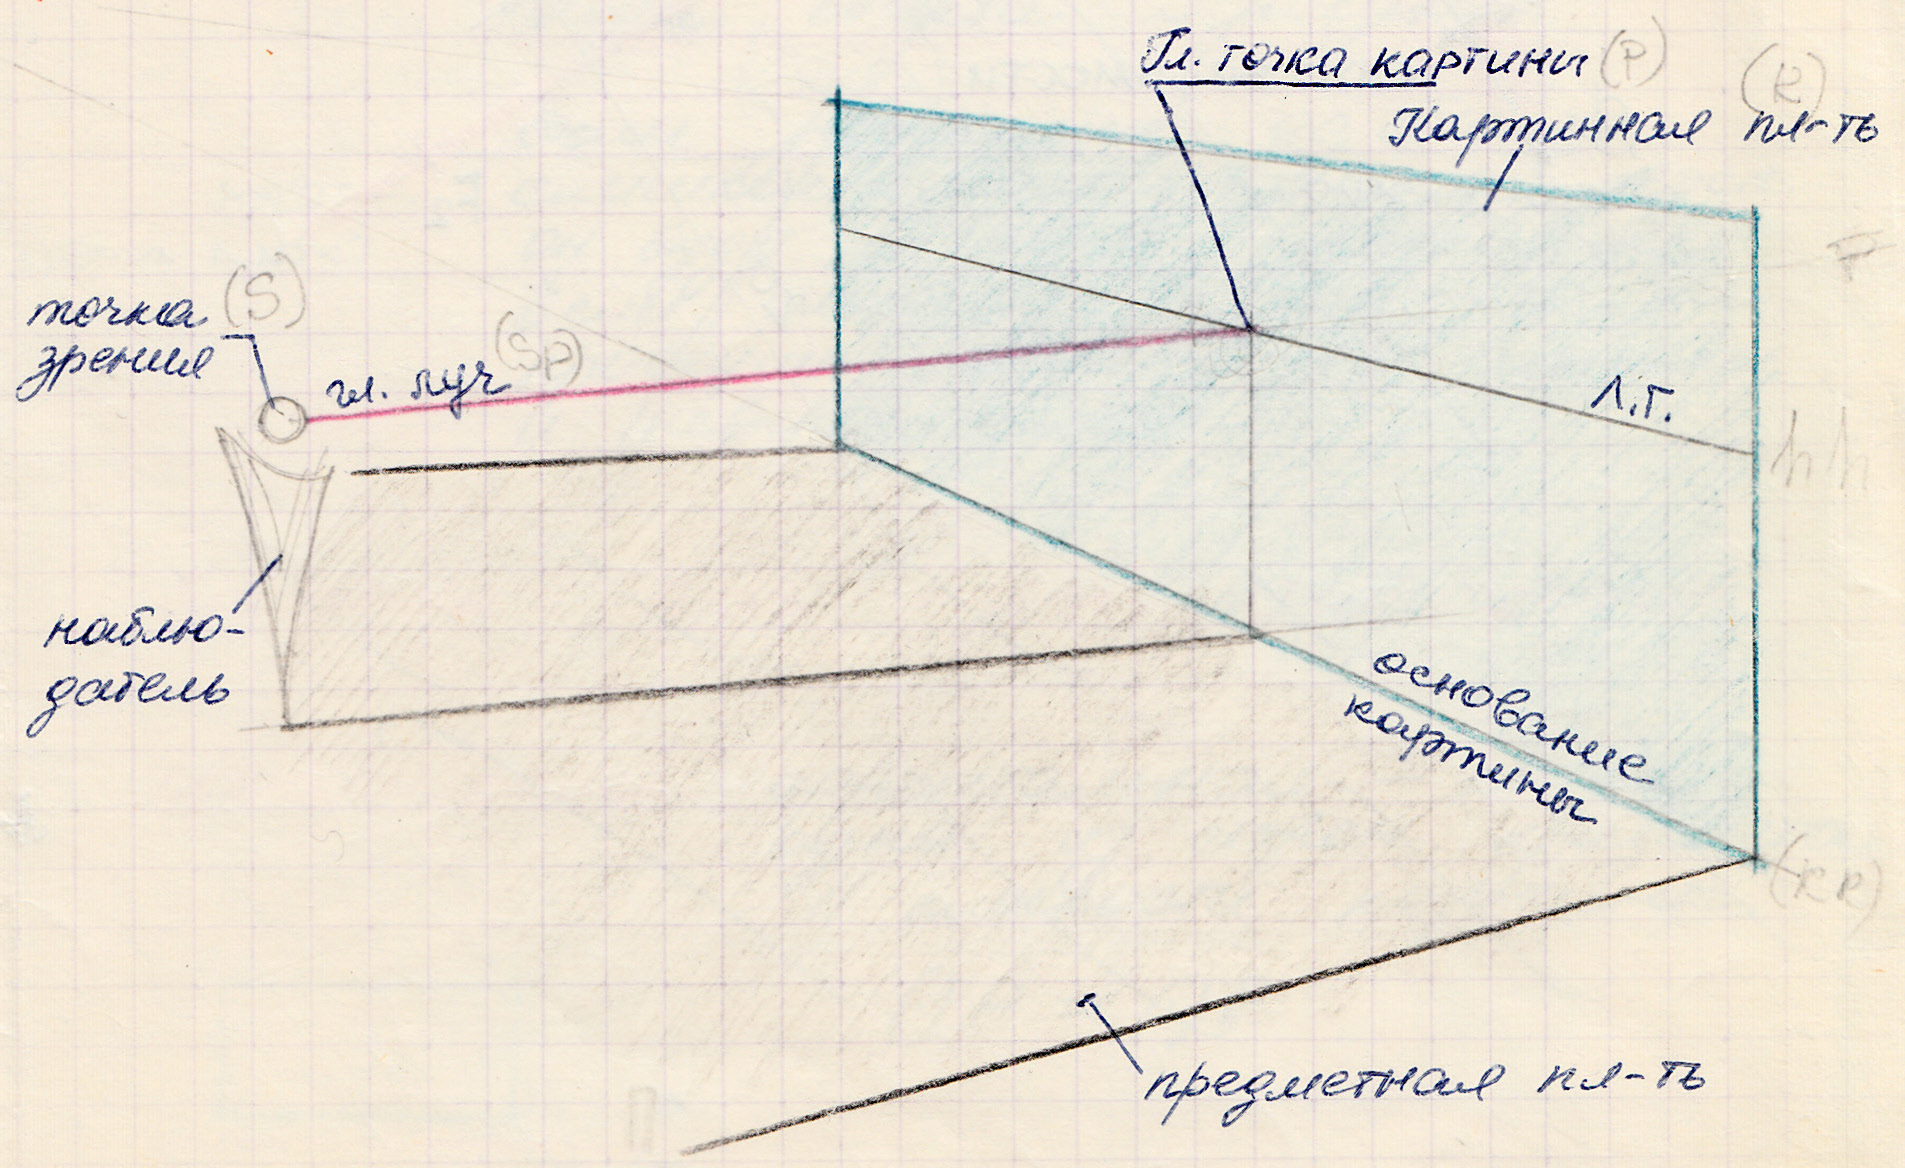 Гл. точка картины (P)
(K)
Картинная пл-ть
точка (S)
зрения
гл. луч (SP)
Л.Г.
hh
наблю-
датель
основание
картины
(KK)
предметная пл-ть
П